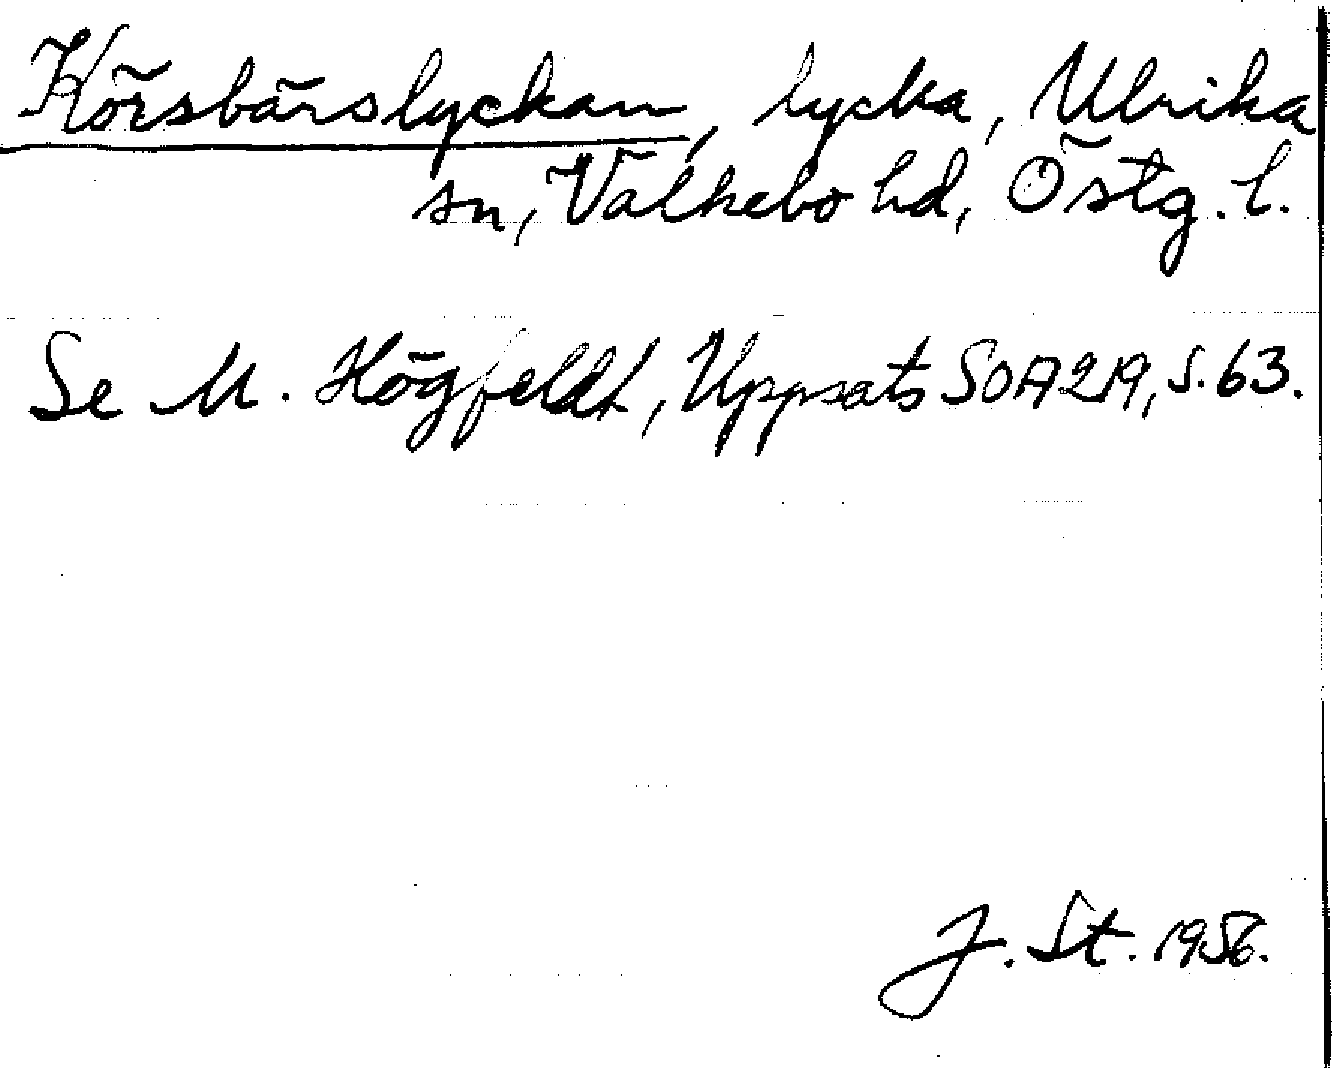 Körsbärslyckan, lycka, Ulrika
sn, Valkebo hd, Östg. l.
Se M. Högfeldt, Uppsats SOA219, s. 63.
J. St. 1956.